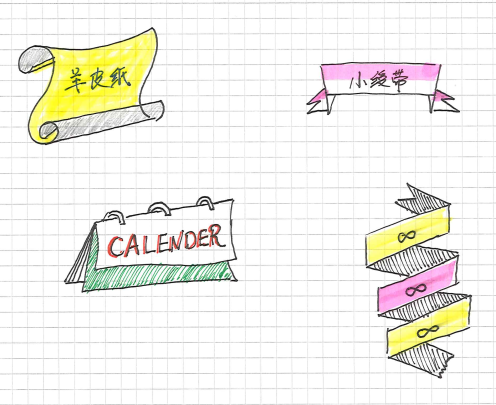 羊皮纸
小绶带
CALENDER
∞
∞
∞